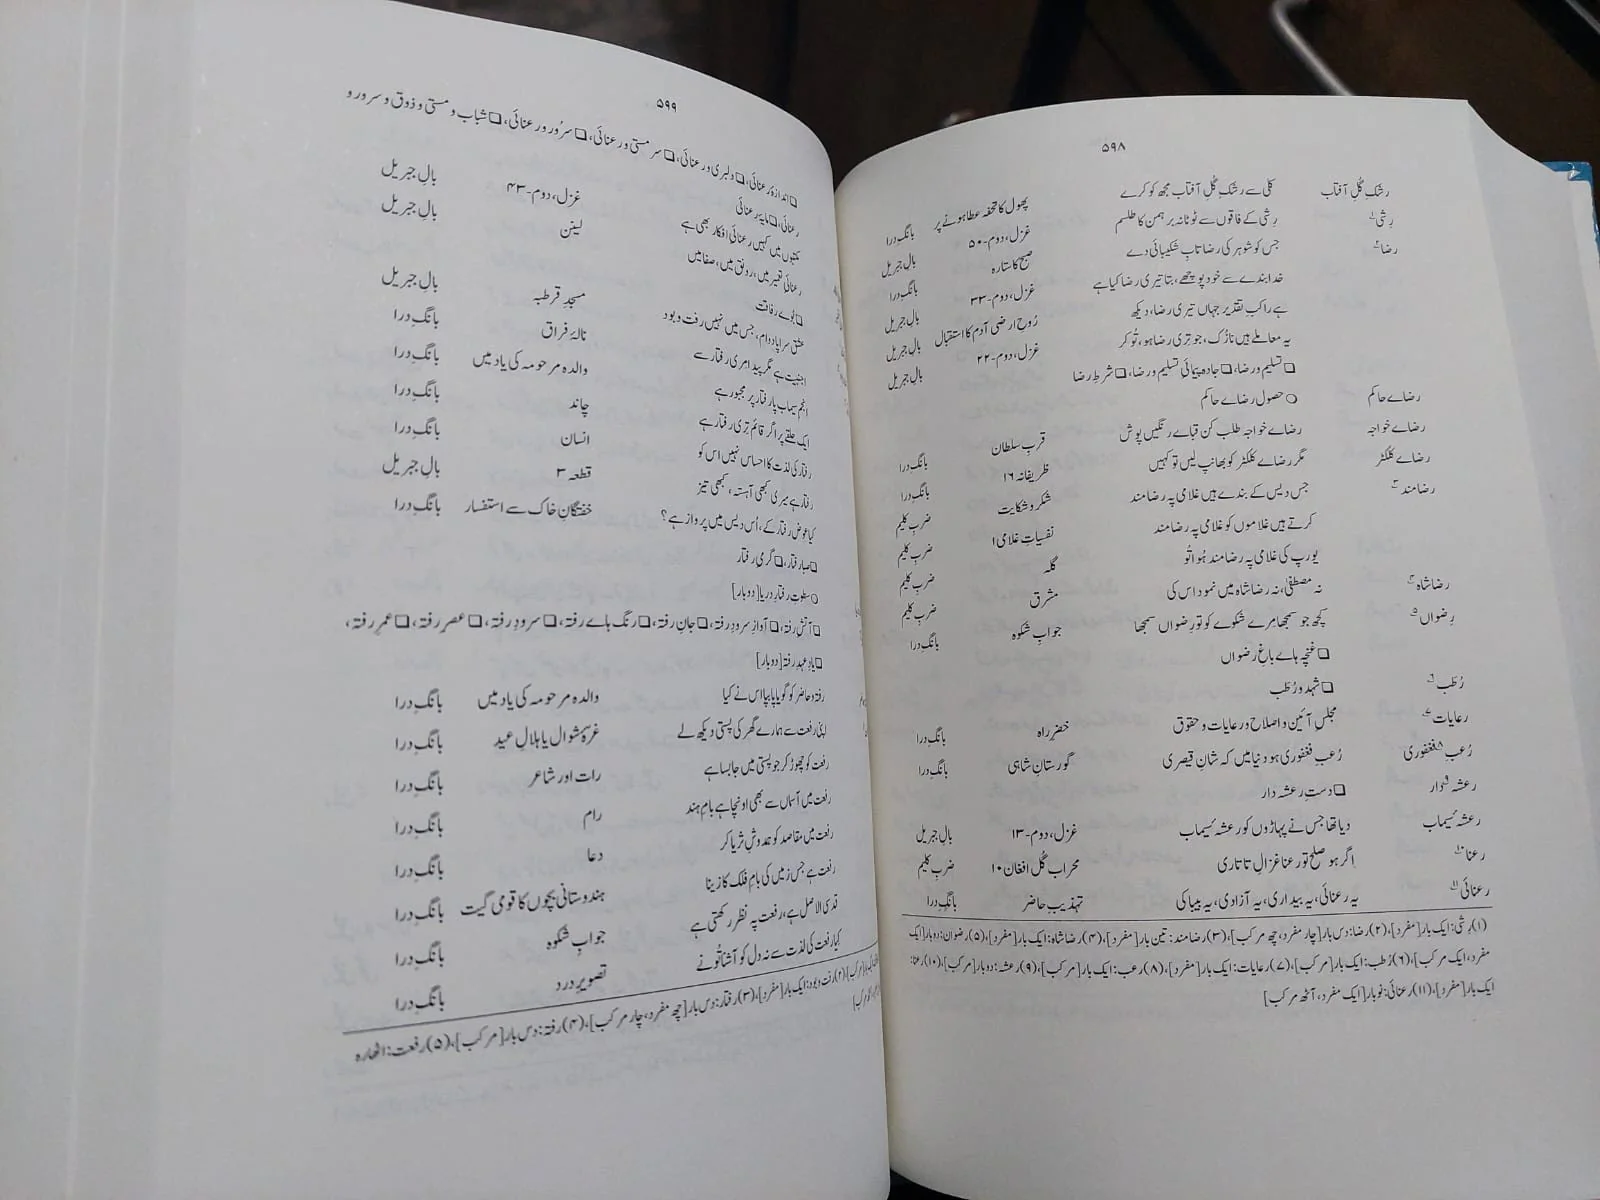 ۵۹۸
رشکِ گُلِ آفتاب کلی سے رشکِ گُلِ آفتاب مجھ کو کرے پھول کا تحفہ عطا ہونے پر بانگِ درا
رِشی رِشی کے فاقوں سے ٹوٹا نہ برہمن کا طلسم غزل، دوم-۵۰ بالِ جبریل
رضا جس کو شوہر کی رضا تابِ شکیبائی دے صبح کا ستارہ بانگِ درا
خدا بندے سے خود پوچھے، بتا تیری رضا کیا ہے غزل، دوم-۳۳ بالِ جبریل
ہے راکبِ تقدیرِ جہاں تیری رضا، دیکھ رُوحِ ارضی آدم کا استقبال بالِ جبریل
یہ معاملے ہیں نازُک، جو تِری رضا ہو، تُو کر غزل، دوم-۲۲ بالِ جبریل
□ تسلیم و رضا، □ جادہ پیمائی تسلیم و رضا، □ شرطِ رضا
رضاے حاکم ○ حصولِ رضاے حاکم
رضاے خواجہ رضاے خواجہ طلب کن قباے رنگیں پوش قربِ سلطان بانگِ درا
رضاے کلکٹر مگر رضاے کلکٹر کو بھانپ لیں تو کہیں ظریفانہ ۱۶ بانگِ درا
رضامند جس دیس کے بندے ہیں غلامی پہ رضامند شکر و شکایت ضربِ کلیم
کرتے ہیں غلاموں کو غلامی پہ رضامند نفسیاتِ غلامی ۱ ضربِ کلیم
یورپ کی غلامی پہ رضامند ہُوا تُو گلہ ضربِ کلیم
رضاشاہ نہ مصطفیٰ، نہ رضاشاہ میں نمود اس کی مشرق ضربِ کلیم
رِضواں کچھ جو سمجھا مِرے شکوے کو تو رِضواں سمجھا جوابِ شکوہ بانگِ درا
□ غنچہ ہاے باغِ رضواں
رُطَب □ شہد و رُطَب
رعایات مجلسِ آئین و اصلاح و رعایات و حقوق خضرِ راہ بانگِ درا
رُعبِ فغفوری رُعبِ فغفوری ہو دنیا میں کہ شانِ قیصری گورستانِ شاہی بانگِ درا
رعشہ دار □ دستِ رعشہ دار
رعشۂ سیماب دیا تھا جس نے پہاڑوں کو رعشۂ سیماب غزل، دوم-۱۳ بالِ جبریل
رعنا اگر ہو صلح تو رعنا غزالِ تاتاری محراب گُل افغان ۱۰ ضربِ کلیم
رعنائی یہ رعنائی، یہ بیداری، یہ آزادی، یہ بیباکی تہذیبِ حاضر بانگِ درا
(۱) رِشی: ایک بار [مفرد]، (۲) رضا: دس بار [چار مفرد، چھ مرکب]، (۳) رضامند: تین بار [مفرد]، (۴) رضاشاہ: ایک بار [مفرد]، (۵) رضوان: دو بار [ایک
مفرد، ایک مرکب]، (۶) رُطَب: ایک بار [مرکب]، (۷) رعایات: ایک بار [مفرد]، (۸) رعب: ایک بار [مرکب]، (۹) رعشہ: دو بار [مرکب]، (۱۰) رعنا:
ایک بار [مفرد]، (۱۱) رعنائی: نو بار [ایک مفرد، آٹھ مرکب]
۵۹۹
□ اندازۂ رعنائی، □ دلبری و رعنائی، □ سرمستی و رعنائی، □ سرُور و رعنائی، □ شباب و مستی و ذوق و سرور و
رعنائی، □ مایۂ رعنائی
مکتبوں میں کہیں رعنائیِ افکار بھی ہے غزل، دوم-۴۳ بالِ جبریل
رعنائیِ تعمیر میں، رونق میں، صفا میں لینن بالِ جبریل
□ بُوے رفاقت
عشق سراپا دوام، جس میں نہیں رفت و بود مسجدِ قرطبہ بالِ جبریل
اجنبیت ہے مگر پیدا مری رفتار سے نالۂ فراق بانگِ درا
انجمِ سیماب پا رفتار پر مجبور ہے والدہ مرحومہ کی یاد میں بانگِ درا
ایک حلقے پر اگر قائم تِری رفتار ہے چاند بانگِ درا
رفتار کی لذت کا احساس نہیں اس کو انسان بانگِ درا
رفتار ہے میری کبھی آہستہ، کبھی تیز قطعہ ۳ بالِ جبریل
کیا عوض رفتار کے، اُس دیس میں پرواز ہے؟ خفتگانِ خاک سے استفسار بانگِ درا
□ صبارفتار، □ گرمیِ رفتار
○ سطوتِ رفتارِ دریا [دو بار]
□ آتشِ رفتہ، □ آوازِ سرودِ رفتہ، □ جانِ رفتہ، □ رنگ ہاے رفتہ، □ سرودِ رفتہ، □ عصرِ رفتہ، □ عمرِ رفتہ،
□ یادِ عہدِ رفتہ [دو بار]
رفتہ و حاضر کو گویا پا بپا اس نے کیا والدہ مرحومہ کی یاد میں بانگِ درا
اپنی رفعت سے ہمارے گھر کی پستی دیکھ لے غرّۂ شوال یا ہلالِ عید بانگِ درا
رفعت کو چھوڑ کر جو پستی میں جا بسا ہے رات اور شاعر بانگِ درا
رفعت میں آسماں سے بھی اونچا ہے بامِ ہند رام بانگِ درا
رفعت میں مقاصد کو ہمدوشِ ثریا کر دعا بانگِ درا
رفعت ہے جس زمیں کی بامِ فلک کا زینا ہندوستانی بچوں کا قومی گیت بانگِ درا
قدسی الاصل ہے، رفعت پہ نظر رکھتی ہے جوابِ شکوہ بانگِ درا
کیا رفعت کی لذت سے نہ دل کو آشنا تُو نے تصویرِ درد بانگِ درا
ایک بار [مرکب]، (۲) رفت و بود: ایک بار [مفرد]، (۳) رفتار: دس بار [چھ مفرد، چار مرکب]، (۴) رفتہ: دس بار [مرکب]، (۵) رفعت: اٹھارہ